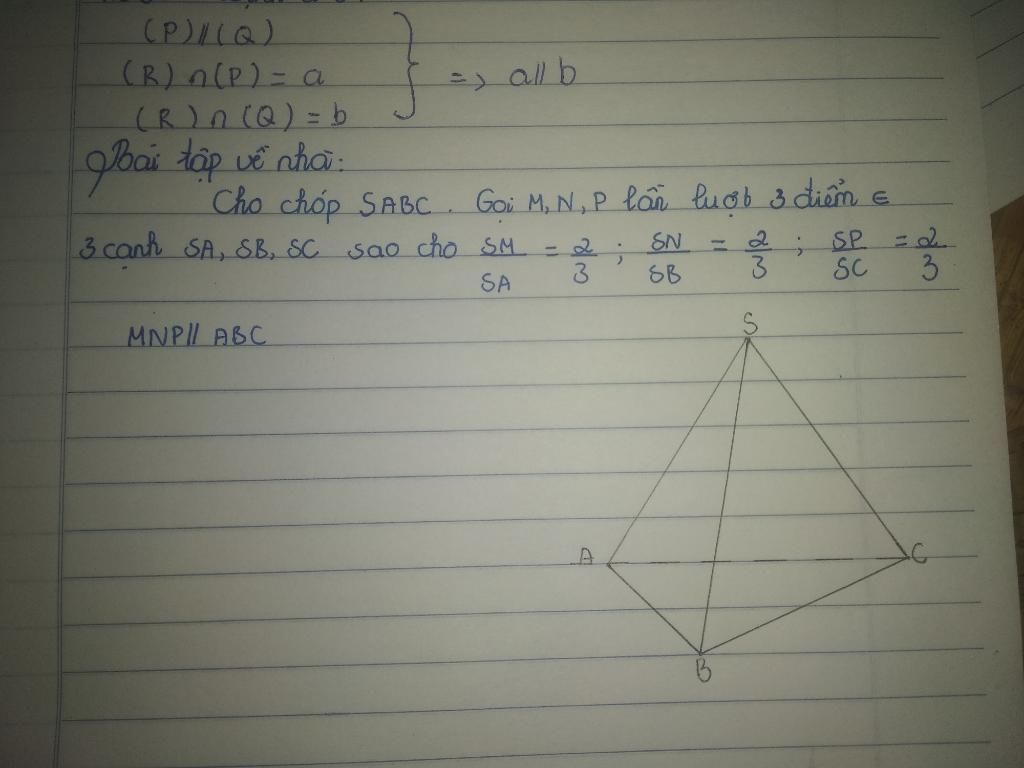 (P)//(Q)
(R) ∩ (P) = a } => a // b
(R) ∩ (Q) = b
Bài tập về nhà:
Cho chóp SABC. Gọi M, N, P lần lượt 3 điểm ∈
3 cạnh SA, SB, SC sao cho SM/SA = 2/3 ; SN/SB = 2/3 ; SP/SC = 2/3
MNP // ABC
S
A
C
B